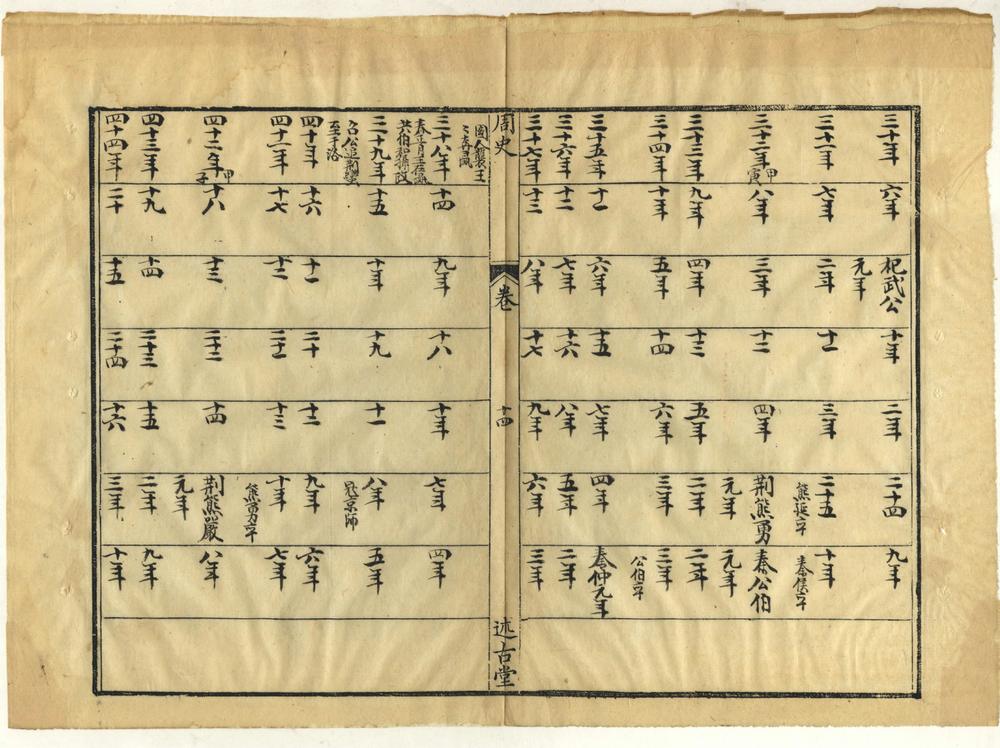 三十年 六年 杞武公 元年 十年 二年 二十四 九年
三十一年 七年 二年 十一 三年 二十五 熊延卒 十年 秦侯卒
三十二年 甲寅 八年 三年 十二 四年 荆熊勇 元年 秦公伯 元年
三十三年 九年 四年 十三 五年 二年 二年
三十四年 十年 五年 十四 六年 三年 三年 公伯卒
三十五年 十一 六年 十五 七年 四年 秦仲元年
三十六年 十二 七年 十六 八年 五年 二年
三十七年 十三 八年 十七 九年 六年 三年
周史 卷 十四 述古堂
國人襲王
〻奔彘
三十八年 十四 九年 十八 十年 七年 四年
春正月王居彘
共伯和攝政
三十九年 十五 十年 十九 十一 八年 寇京師 五年
召公追荆蠻
至于洛
四十年 十六 十一 二十 十二 九年 六年
四十一年 十七 十二 二十一 十三 十年 熊勇卒 七年
四十二年 甲子 十八 十三 二十二 十四 荆熊嚴 元年 八年
四十三年 十九 十四 二十三 十五 二年 九年
四十四年 二十 十五 二十四 十六 三年 十年